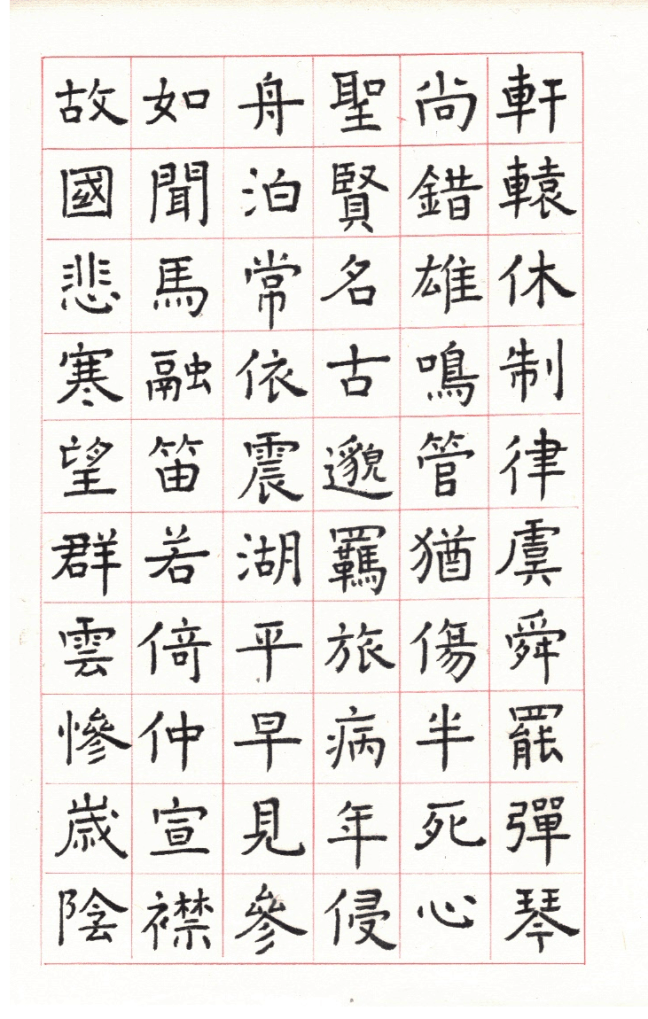 軒轅休制律虞舜罷彈琴
尚錯雄鳴管猶傷半死心
聖賢名古邈羈旅病年侵
舟泊常依震湖平早見參
如聞馬融笛若倚仲宣襟
故國悲寒望群雲慘歲陰